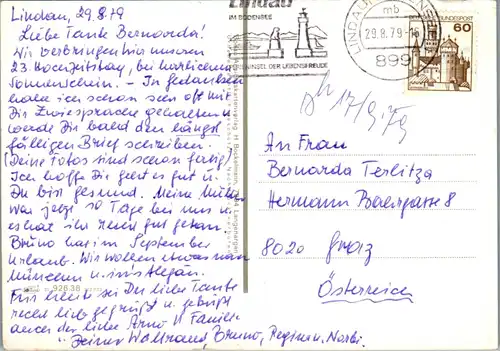 Lindau, 29.8.79
Liebe Tante Bernarda!
Wir verbringen hier unseren
23. Hochzeitstag, bei herrlichem
Sonnenschein. – In Gedanken
habe ich schon sehr oft mit
Dir Zwiesprache gehalten
werde Dir bald den längst
fälligen Brief schreiben.
(Deine Fotos sind schon fertig)
Ich hoffe Dir geht es gut u.
Du bist gesund. Meine Mutter
war jetzt 10 Tage bei uns u.
es hat ihr sehr gut getan.
Bruno hat im September
Urlaub. Wir wollen etwas nach
München u. ins Allgäu.
Für heute sei Du liebe Tante
recht lieb gegrüßt u. geküßt
auch der liebe Arno u. Familie
Deine Waltraud, Bruno, Regina u. Norbi.
Lindau
IM BODENSEE
INSEL DER LEBENSFREUDE
LINDAU
mb
29.8.79-16
899
DEUTSCHE BUNDESPOST
60
17/9 79
An Frau
Bernarda Terlitza
Hermann Bahrgasse 8
8020 Graz
Österreich
926.38
Langenargen